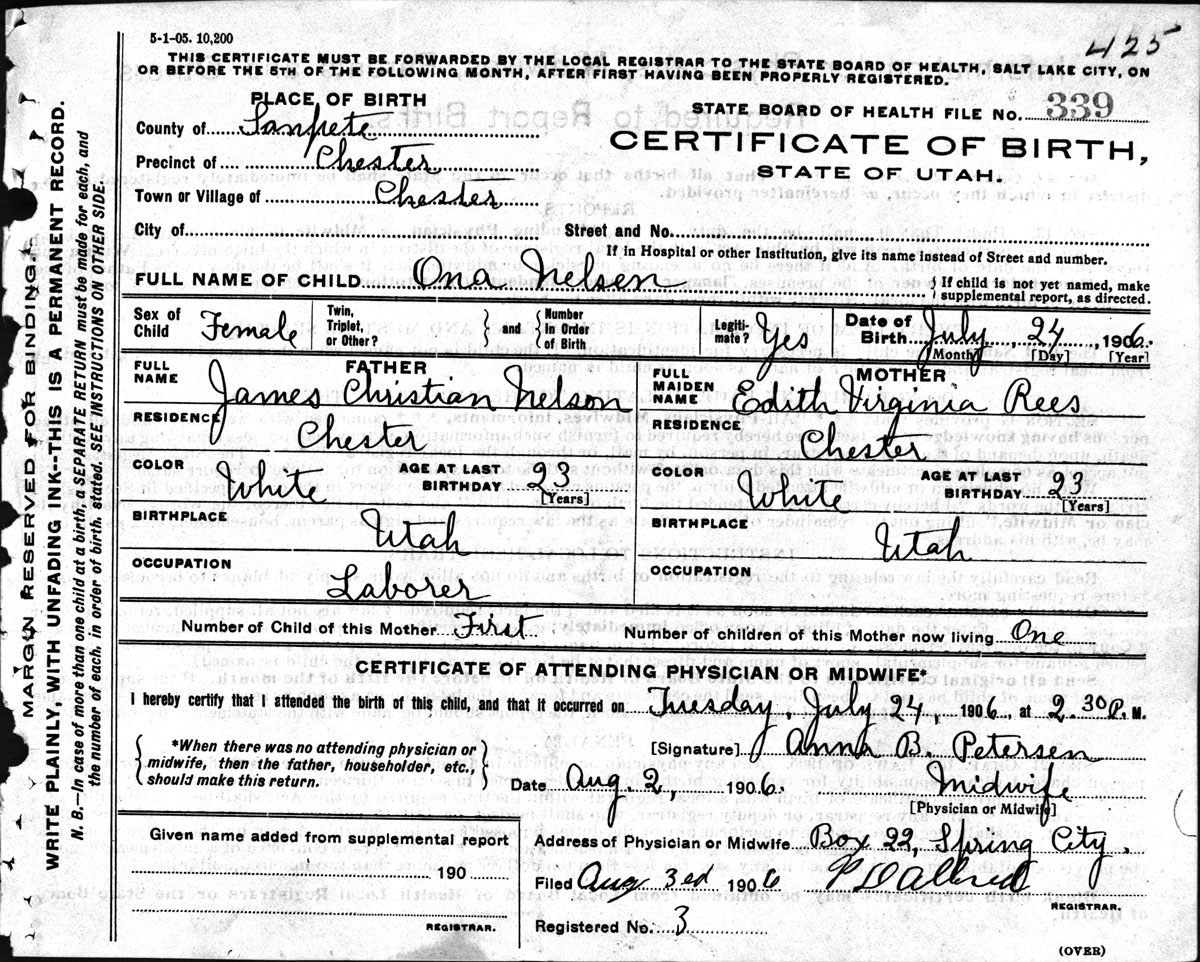 5-1-05. 10,200
425
THIS CERTIFICATE MUST BE FORWARDED BY THE LOCAL REGISTRAR TO THE STATE BOARD OF HEALTH, SALT LAKE CITY, ON
OR BEFORE THE 5TH OF THE FOLLOWING MONTH, AFTER FIRST HAVING BEEN PROPERLY REGISTERED.
MARGIN RESERVED FOR BINDING.
WRITE PLAINLY, WITH UNFADING INK--THIS IS A PERMANENT RECORD.
N. B.--In case of more than one child at a birth, a SEPARATE RETURN must be made for each, and
the number of each, in order of birth, stated. SEE INSTRUCTIONS ON OTHER SIDE.
PLACE OF BIRTH
County of Sanpete
Precinct of Chester
Town or Village of Chester
STATE BOARD OF HEALTH FILE NO. 339
CERTIFICATE OF BIRTH,
STATE OF UTAH.
City of Street and No.
If in Hospital or other Institution, give its name instead of Street and number.
FULL NAME OF CHILD Ona Nelsen
If child is not yet named, make
supplemental report, as directed.
Sex of Child Female
Twin, Triplet, or Other? and Number In Order of Birth
Legitimate? Yes
Date of Birth July, 24, 1906.
[Month] [Day] [Year]
FATHER
FULL NAME James Christian Nelson
RESIDENCE Chester
COLOR White AGE AT LAST BIRTHDAY 23
[Years]
BIRTHPLACE Utah
OCCUPATION Laborer
MOTHER
FULL MAIDEN NAME Edith Virginia Rees
RESIDENCE Chester
COLOR White AGE AT LAST BIRTHDAY 23
[Years]
BIRTHPLACE Utah
OCCUPATION
Number of Child of this Mother First Number of children of this Mother now living One
CERTIFICATE OF ATTENDING PHYSICIAN OR MIDWIFE*
I hereby certify that I attended the birth of this child, and that it occurred on Tuesday, July 24, 1906, at 2.30 P. M.
*When there was no attending physician or
midwife, then the father, householder, etc.,
should make this return.
[Signature] Anna B. Petersen
Date Aug. 2, 1906. Midwife
[Physician or Midwife]
Given name added from supplemental report
190
REGISTRAR.
Address of Physician or Midwife Box 22, Spring City.
Filed Aug 3ed 1906
REGISTRAR.
Registered No. 3
(OVER)